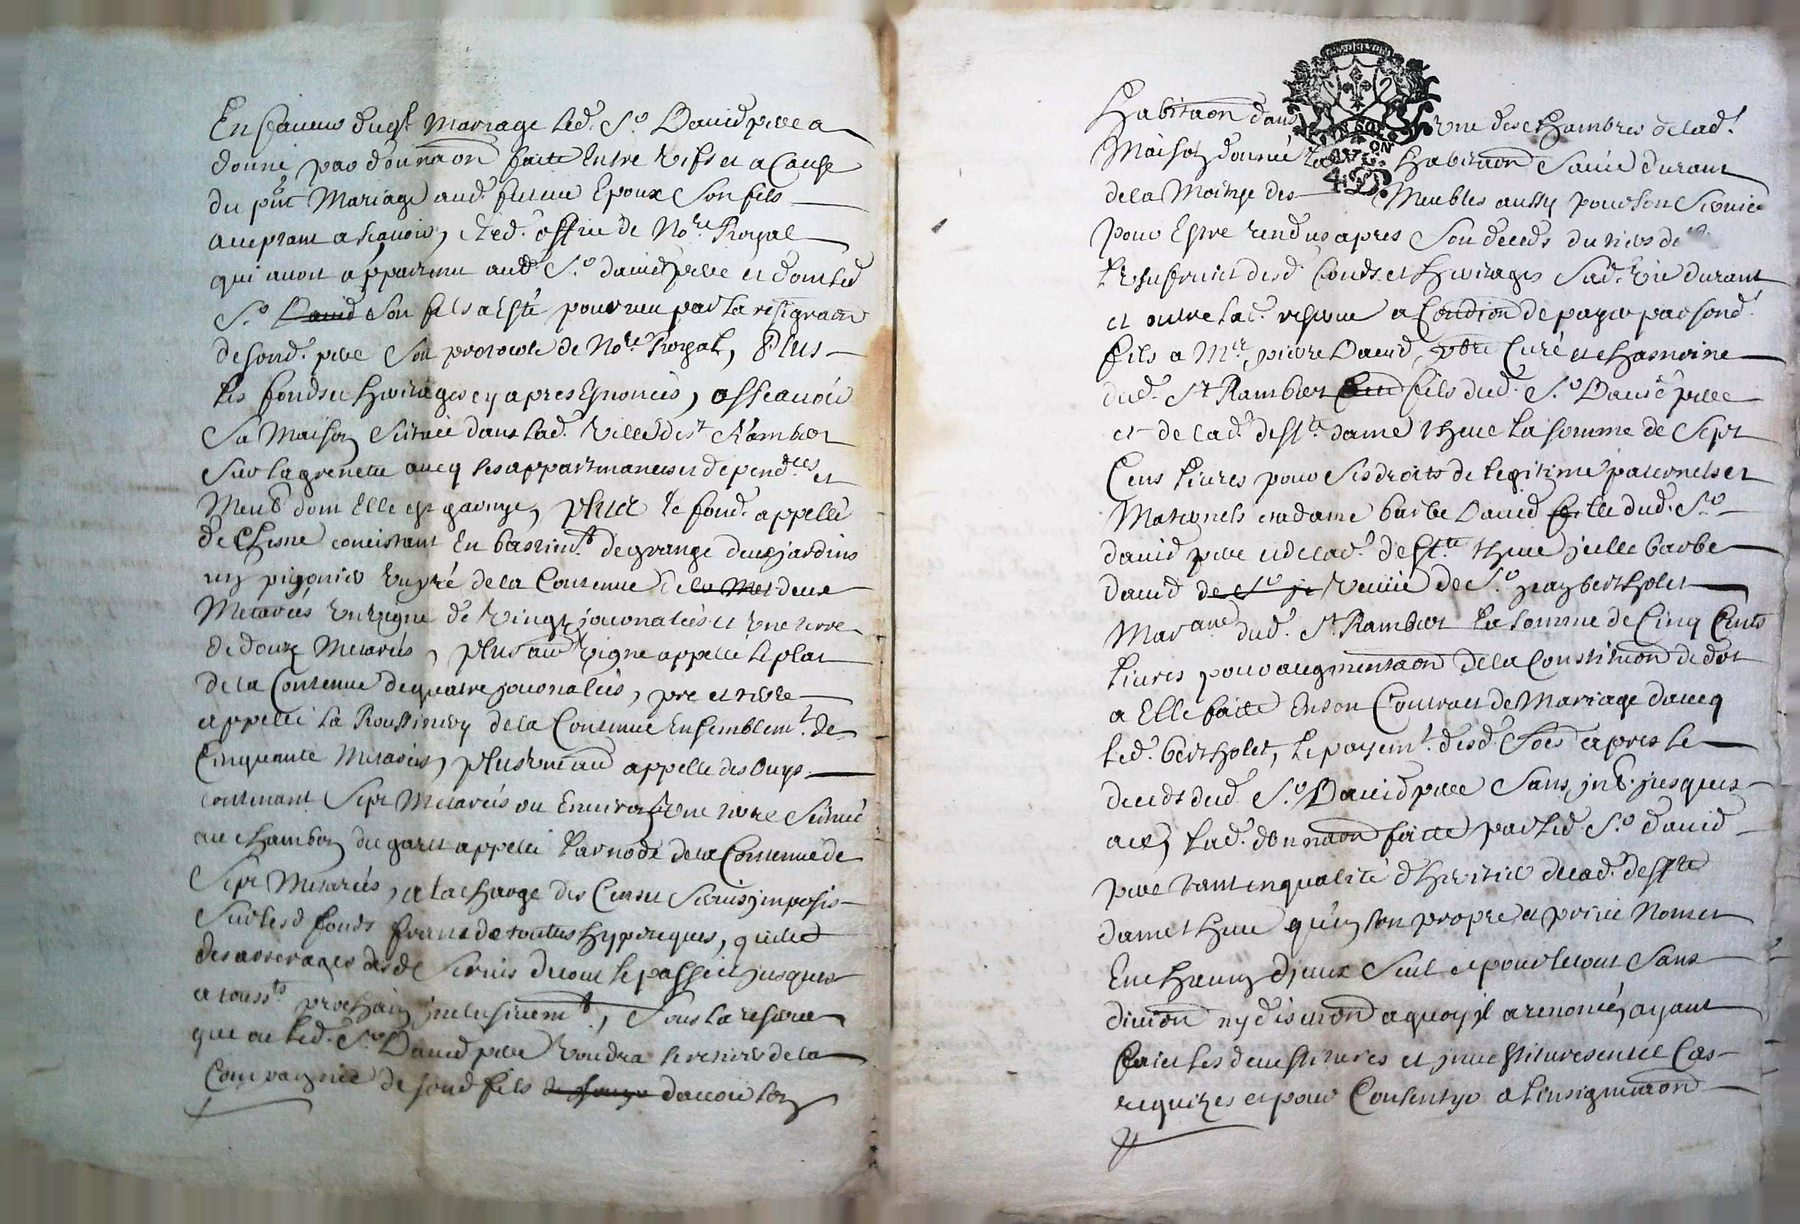 En faveur duql mariage led. Sr David pere a
donné par dona͠on faite entre vifs et a cause
du pnt mariage aud. futeur epoux son fils
acceptant a scavoir, led. office de Nore Royal
qui avoit appartenu aud. Sr david pere et dont led
Sr David son fils a esté pourveu par la resigna͠on
de sond. pere son protocole de Nore Royal, Plus
les fonds et heritages cy apres esnoncés, assçavoir
sa maison scituée dans lad. ville de St Rambert
sur la grenette avecq les appartenances et dependces et
meubl dont elle est garnye, plus le fond. appellé
de Chesne concistant en bastimt de grange deux jardins
un pigonier un pré de la contenue de la Met deux
metarées un vigne de vingt journalées et une terre
de douze metarées, plus une vigne appelle le plat
de la contenue de quatre journalées, pré et terre
appellé la Roussiniery de la contenue ensemblemt. de
cinquante metarées, plus une au appelle des Ouys
contenant sept metarées ou environ une terre scituée
au chambon du garet appellé Varnode de la contenue de
sept metarées, a la charge des cens et servis imposés
sur lesd fonds franc de toutes hypoteques, quitte
des arrerages desd servis de tout le passé et jusques
a toussts prochain inclusivemt, sous la reserve
que ou led. Sr David pere voudra se retirer de la
compagnie de sond fils de jouyr davoir son
habita͠on dans une des chambres de lad.
maison donnée habita͠on sa vie durant
de la moitye des meubles aussy pour son service
pour estre rendus apres son deceds du tiers de
l'usufruit desd. fonds et heritages sad. vie durant
et outre lad. reserve a condi͠on de payer par sond.
fils a Mre pierre David, pbre curé et chanoine
dud. St Rambert fils dud. Sr David pere
et de lad. deffte dame thue la somme de sept
cens livres pour ses droits de legitime paternels et
maternels et a dame barbe David fille dud. Sr
david pere et de lad. deffte thue jcelle barbe
david de Sr j veuve de Sr jean bertholet
marane dud. St Rambert la somme de cinq cents
livres pour augmenta͠on de la constitu͠on de dot
a elle faite en son contract de mariage davecq
led. bertholet, le payemt. desd. soes apres le
deceds dud. Sr David pere sans int. jusques
a ce, lad. dona͠on faite par led Sr david
pere tant en qualité d'heritier de lad. deffte
dame thue qu'en son propre et privé nom et
en chacun d'jeux seul et pour le tout sans
divi͠on ny discu͠on a quoy il a renoncé, ayant
fait les devestitures et jnvestitures en tel cas
requizes et pour consentyr a l'insignua͠on